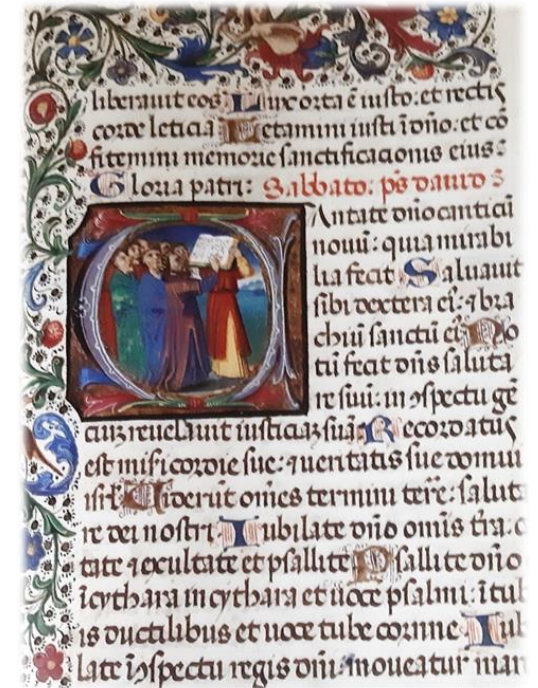 liberauit eos. Lux orta ē iusto: et rectis
corde leticia Letamini iusti ī dño: et cō
fitemini memorie sanctificacionis eius:
Gloria patri: Sabbato: ps dauid
Cantate dño canticū
nouū: quia mirabi
lia fecit Saluauit
sibi dextera ei: ⁊ bra
chiū sanctū ei No
tū fecit dñs saluta
re suū: in ɔspectu gē
ciuʒ reuelauit iusticiaʒ suā Recordatus
est mīsicordie sue: ⁊ ueritatis sue domui
isrł Uiderūt om̄es termini terre: salut
re dei nostri: Iubilate dño omīs tr̄a: c
tate ⁊ exultate et psallite Psallite dño
ī cythara in cythara et uoce psalmi: ī tub
is ductilibus et uoce tube cornee Iub
late ī ɔspectu regis dñi: moueatur mar